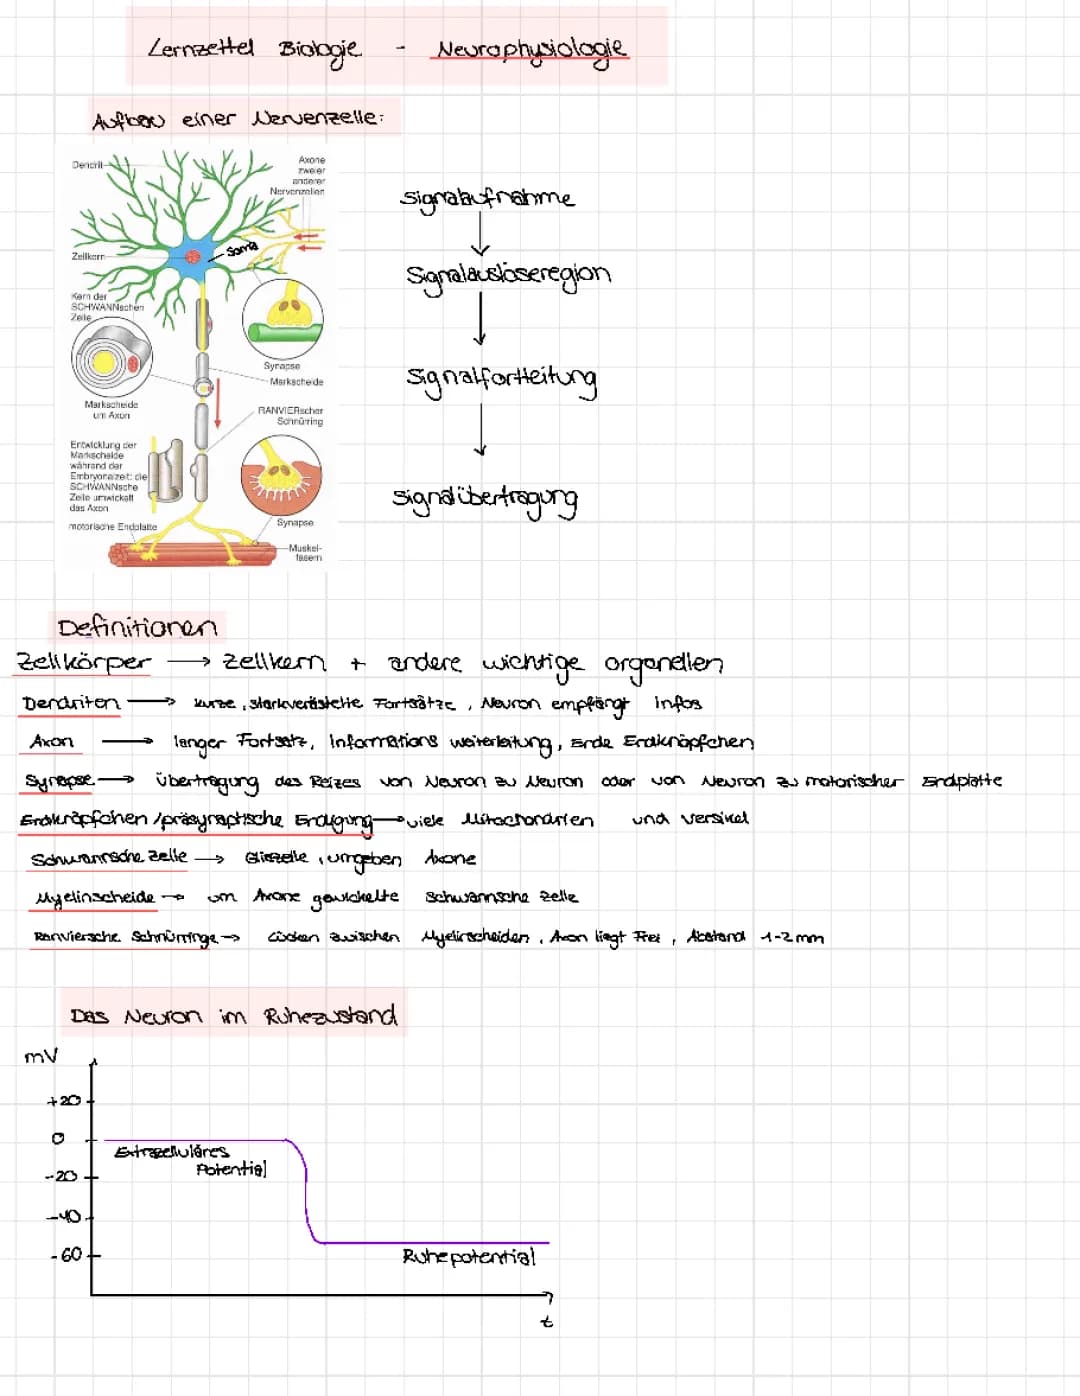 Lernzettel Biologie - Neurophysiologie
Aufbau einer Nervenzelle:
Dendrit
Axone
zweier
anderer
Nervenzellen
Soma
Zellkern
Kern der
SCHWANNschen
Zelle
Synapse
Markscheide
Markscheide
um Axon
RANVIERscher
Schnürring
Entwicklung der
Markscheide
während der
Embryonalzeit: die
SCHWANNsche
Zelle umwickelt
das Axon
motorische Endplatte
Synapse
Muskel-
fasern
Signalaufnahme
Signalauslöseregion
Signalfortleitung
Signalübertragung
Definitionen
Zellkörper → Zellkern + andere wichtige organellen
Dendriten → kurze, starkverästelte Fortsätze, Neuron empfängt infos
Axon → langer Fortsatz, Informations weiterleitung, Ende Endknöpfchen
Synapse → Übertragung des Reizes von Neuron zu Neuron oder von Neuron zu motorischer Endplatte
Endknöpfchen / präsynaptische Endigung → viele Mitochondrien und versikel
Schwannsche Zelle → Gliazelle, umgeben Axone
Myelinscheide → um Axone gewickelte Schwannsche Zelle
Ranviersche Schnürringe → Lücken zwischen Myelinscheiden, Axon liegt Frei, Abstand 1-2mm
Das Neuron im Ruhezustand
mV
+20
0
-20
-40
-60
Extrazelluläres
Potential
Ruhepotential
t